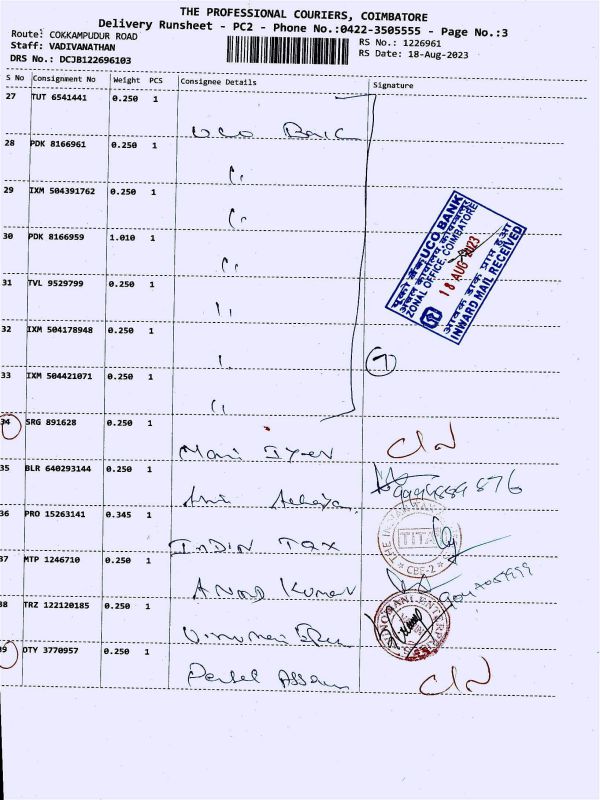 THE PROFESSIONAL COURIERS, COIMBATORE
Delivery Runsheet - PC2 - Phone No.:0422-3505555 - Page No.:3
Route: COKKAMPUDUR ROAD
Staff: VADIVANATHAN
DRS No.: DCJB122696103
RS No.: 1226961
RS Date: 18-Aug-2023
S No Consignment No Weight PCS Consignee Details Signature
27 TUT 6541441 0.250 1 UCO Bank
28 PDK 8166961 0.250 1 "
29 IXM 504391762 0.250 1 "
30 PDK 8166959 1.010 1 "
31 TVL 9529799 0.250 1 "
32 IXM 504178948 0.250 1 "
33 IXM 504421071 0.250 1 "
7
यूको बैंक UCO BANK
ZONAL OFFICE, COIMBATORE
18 AUG 2023
INWARD MAIL RECEIVED
34 SRG 891628 0.250 1 Mani Iyer
35 BLR 640293144 0.250 1
36 PRO 15263141 0.345 1 INDIN TAX
TITAN
CBE-2
37 MTP 1246710 0.250 1 Anand Kumar
38 TRZ 122120185 0.250 1
39 DTY 3770957 0.250 1